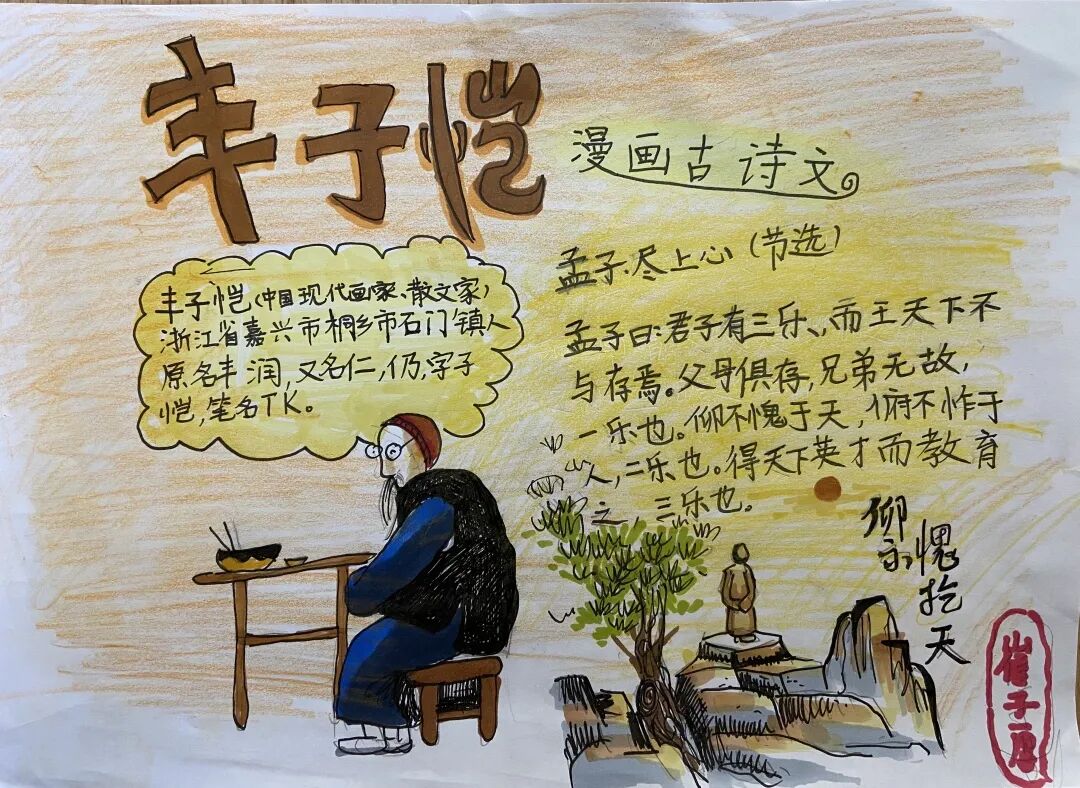 丰子恺
漫画古诗文。
丰子恺(中国现代画家、散文家)
浙江省嘉兴市桐乡市石门镇人
原名丰润,又名仁,仍,字子
恺,笔名TK。
孟子·尽上心(节选)
孟子曰:君子有三乐、而王天下不
与存焉。父母俱存,兄弟无故,
一乐也。仰不愧于天,俯不怍于
人,二乐也。得天下英才而教育
之,三乐也。
仰
愧
天
崔子